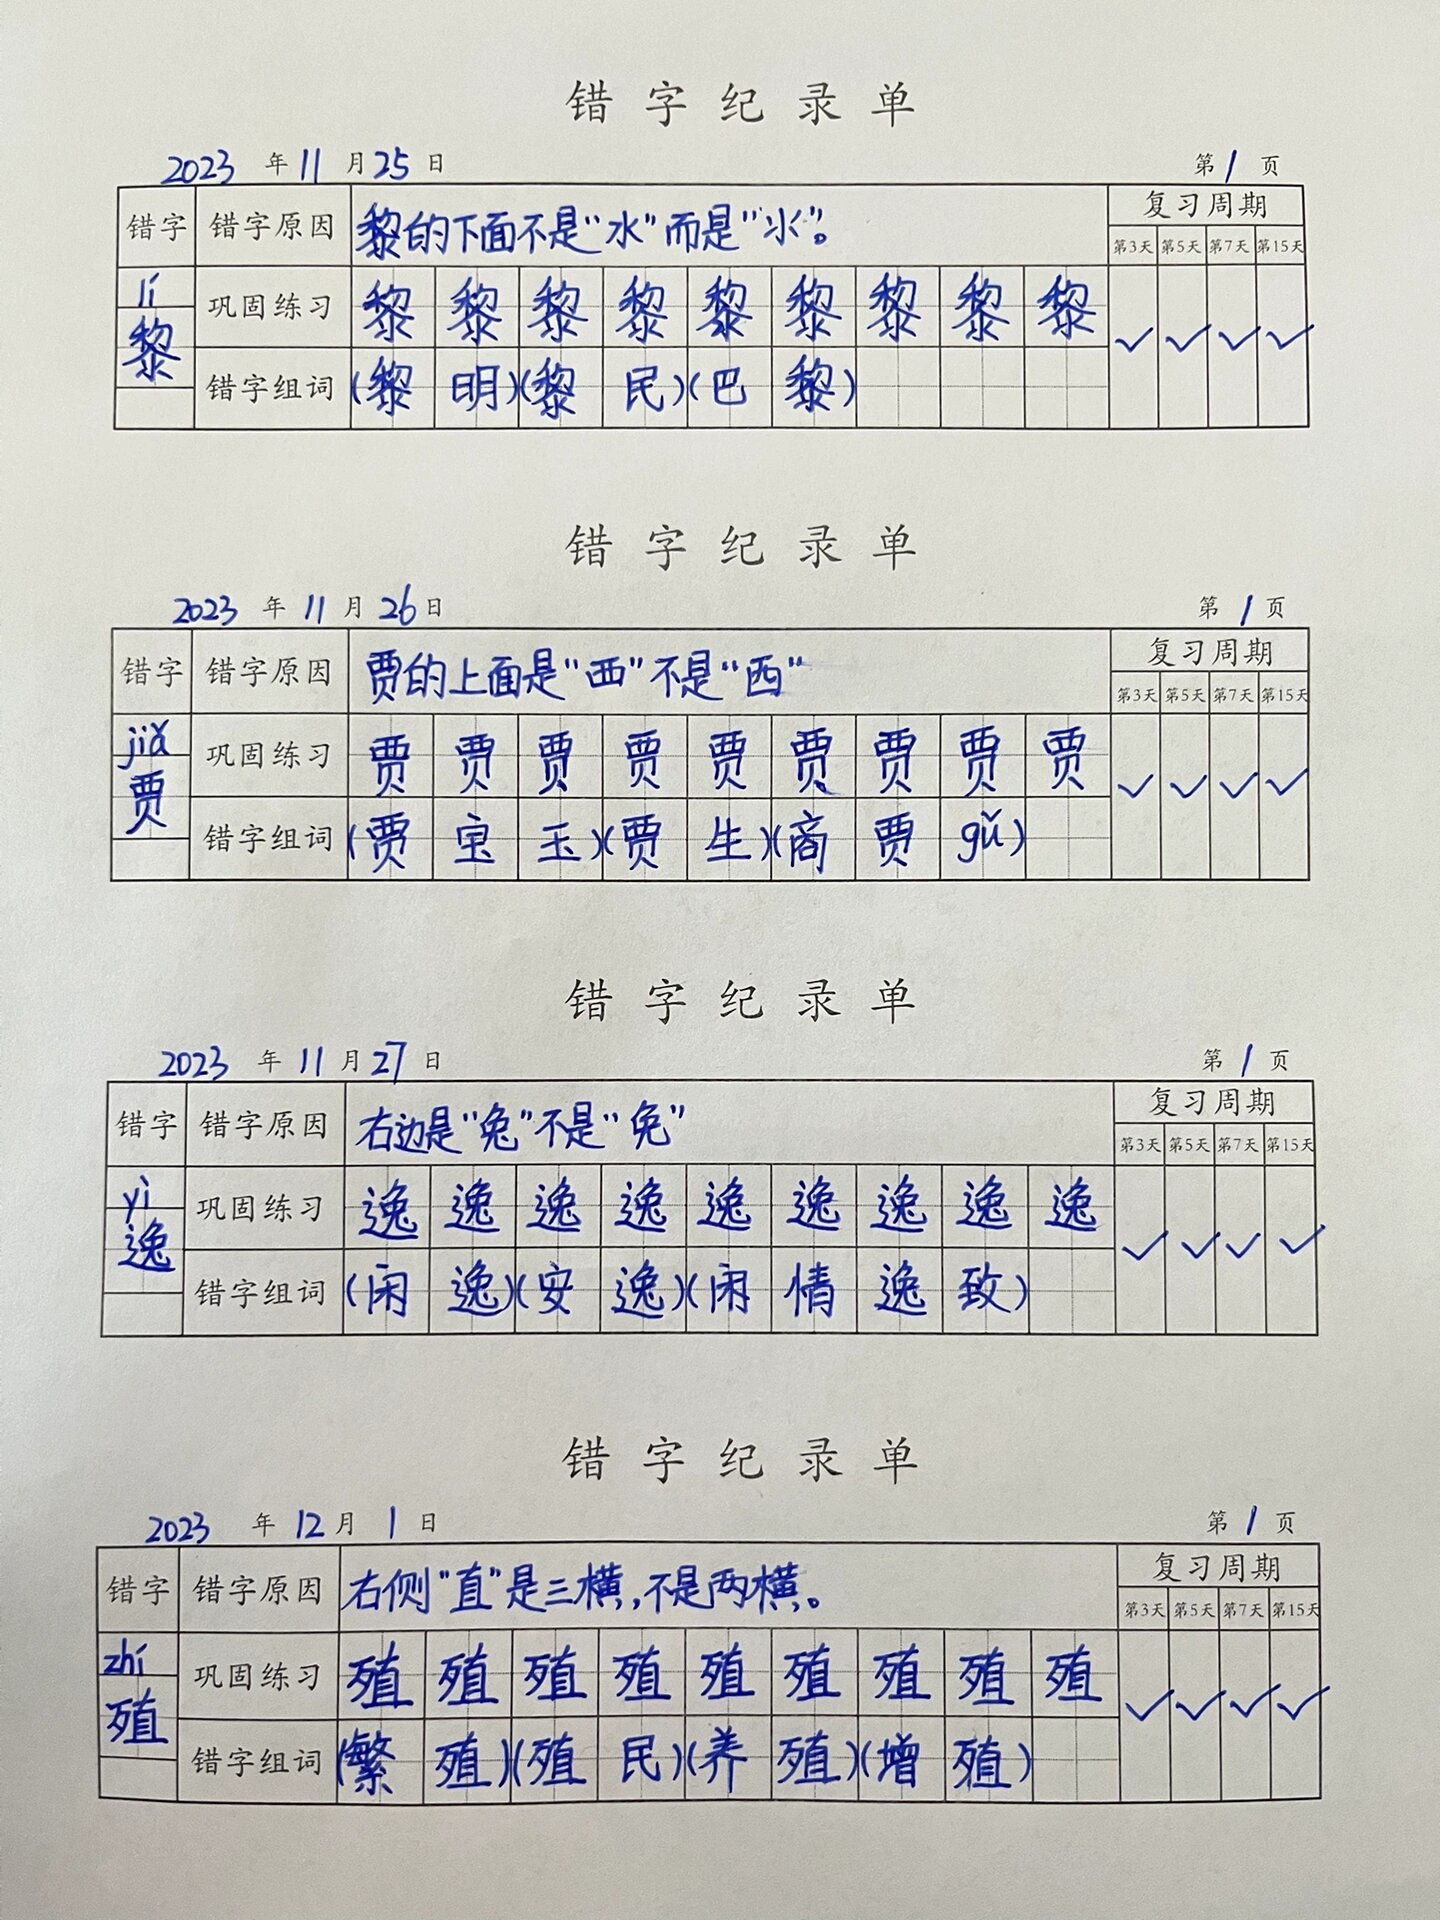 错字纪录单
2023 年 11 月 25 日 第 1 页
错字 错字原因 黎的下面不是“水”而是“氺”。 复习周期
第3天 第5天 第7天 第15天
lí 黎 巩固练习 黎 黎 黎 黎 黎 黎 黎 黎 黎 ✓ ✓ ✓ ✓
错字组词 (黎明)(黎民)(巴黎)
错字纪录单
2023 年 11 月 26 日 第 1 页
错字 错字原因 贾的上面是“覀”不是“西” 复习周期
第3天 第5天 第7天 第15天
jiǎ 贾 巩固练习 贾 贾 贾 贾 贾 贾 贾 贾 贾 ✓ ✓ ✓ ✓
错字组词 (贾宝玉)(贾生)(商贾gǔ)
错字纪录单
2023 年 11 月 27 日 第 1 页
错字 错字原因 右边是“兔”不是“免” 复习周期
第3天 第5天 第7天 第15天
yì 逸 巩固练习 逸 逸 逸 逸 逸 逸 逸 逸 逸 ✓ ✓ ✓ ✓
错字组词 (闲逸)(安逸)(闲情逸致)
错字纪录单
2023 年 12 月 1 日 第 1 页
错字 错字原因 右侧“直”是三横，不是两横。 复习周期
第3天 第5天 第7天 第15天
zhí 殖 巩固练习 殖 殖 殖 殖 殖 殖 殖 殖 殖 ✓ ✓ ✓ ✓
错字组词 (繁殖)(殖民)(养殖)(增殖)